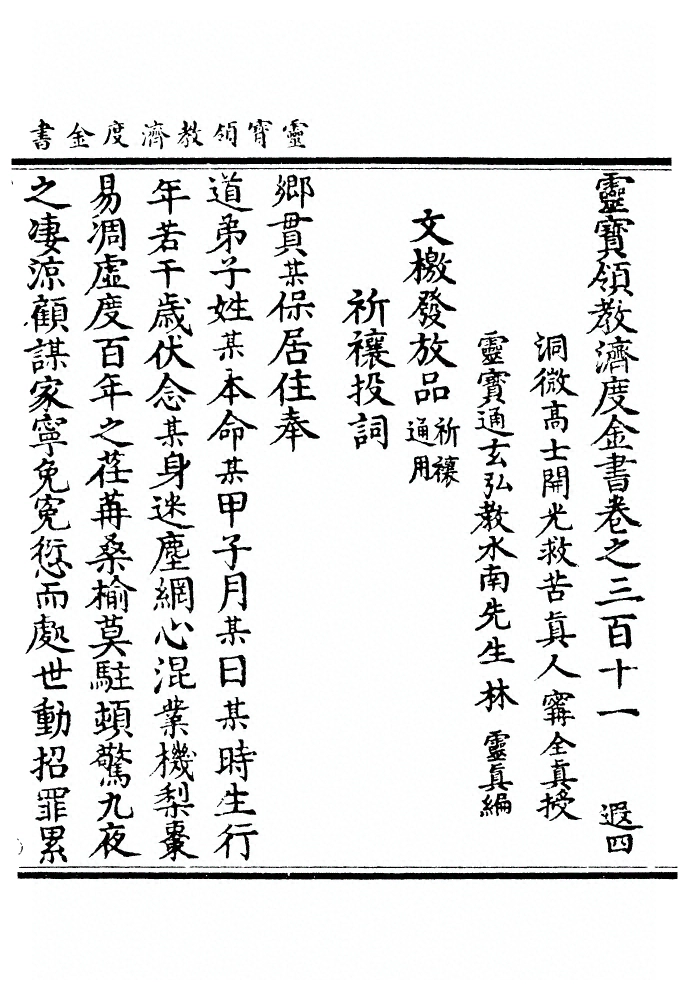 靈寳領教濟度金書
靈寳領教濟度金書卷之三百十一 遐四
洞微高士開光救苦眞人甯全眞授
靈寳通玄弘教水南先生林靈眞編
文檄發放品祈禳通用
祈禳投詞
鄉貫某保居住奉
道弟子姓某本命某甲子月某日某時生行
年若干歲伏念某身迷塵網心混業機梨棗
易凋虛度百年之荏苒桑榆莫駐頓驚九夜
之凄涼顧謀家寧免寃愆而處世動招罪累